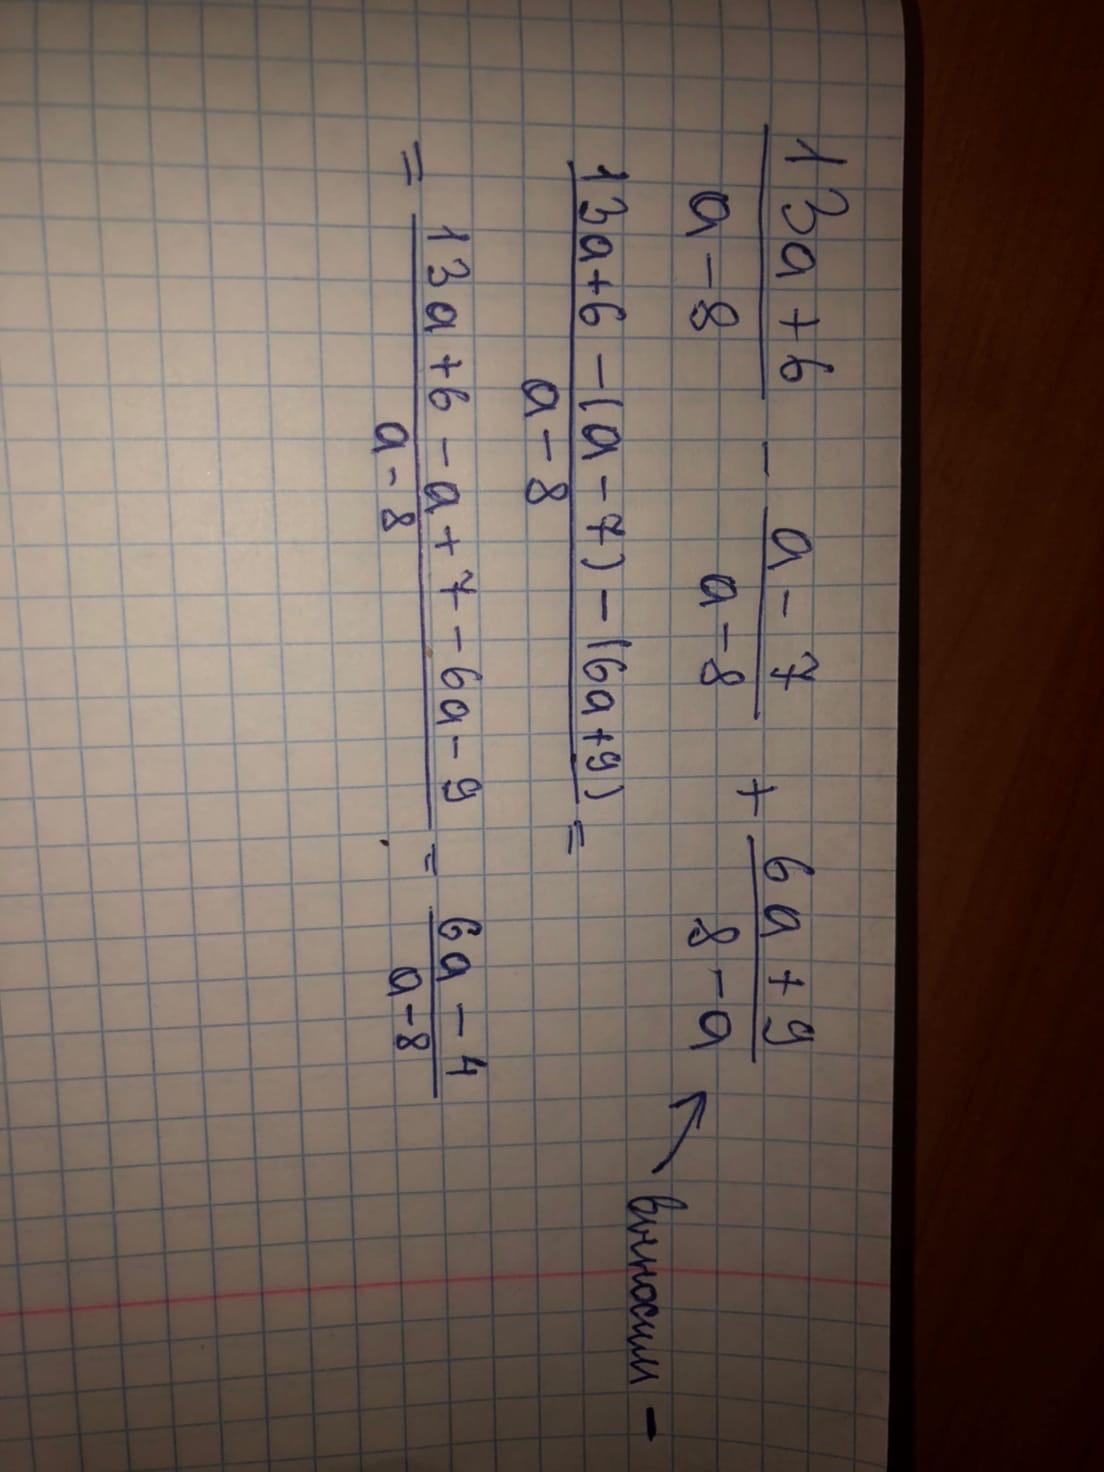 (13a+6)/(a-8) - (a-7)/(a-8) + (6a+9)/(8-a)
выносим -
(13a+6-(a-7)-(6a+9))/(a-8) =
= (13a+6-a+7-6a-9)/(a-8) = (6a-4)/(a-8)